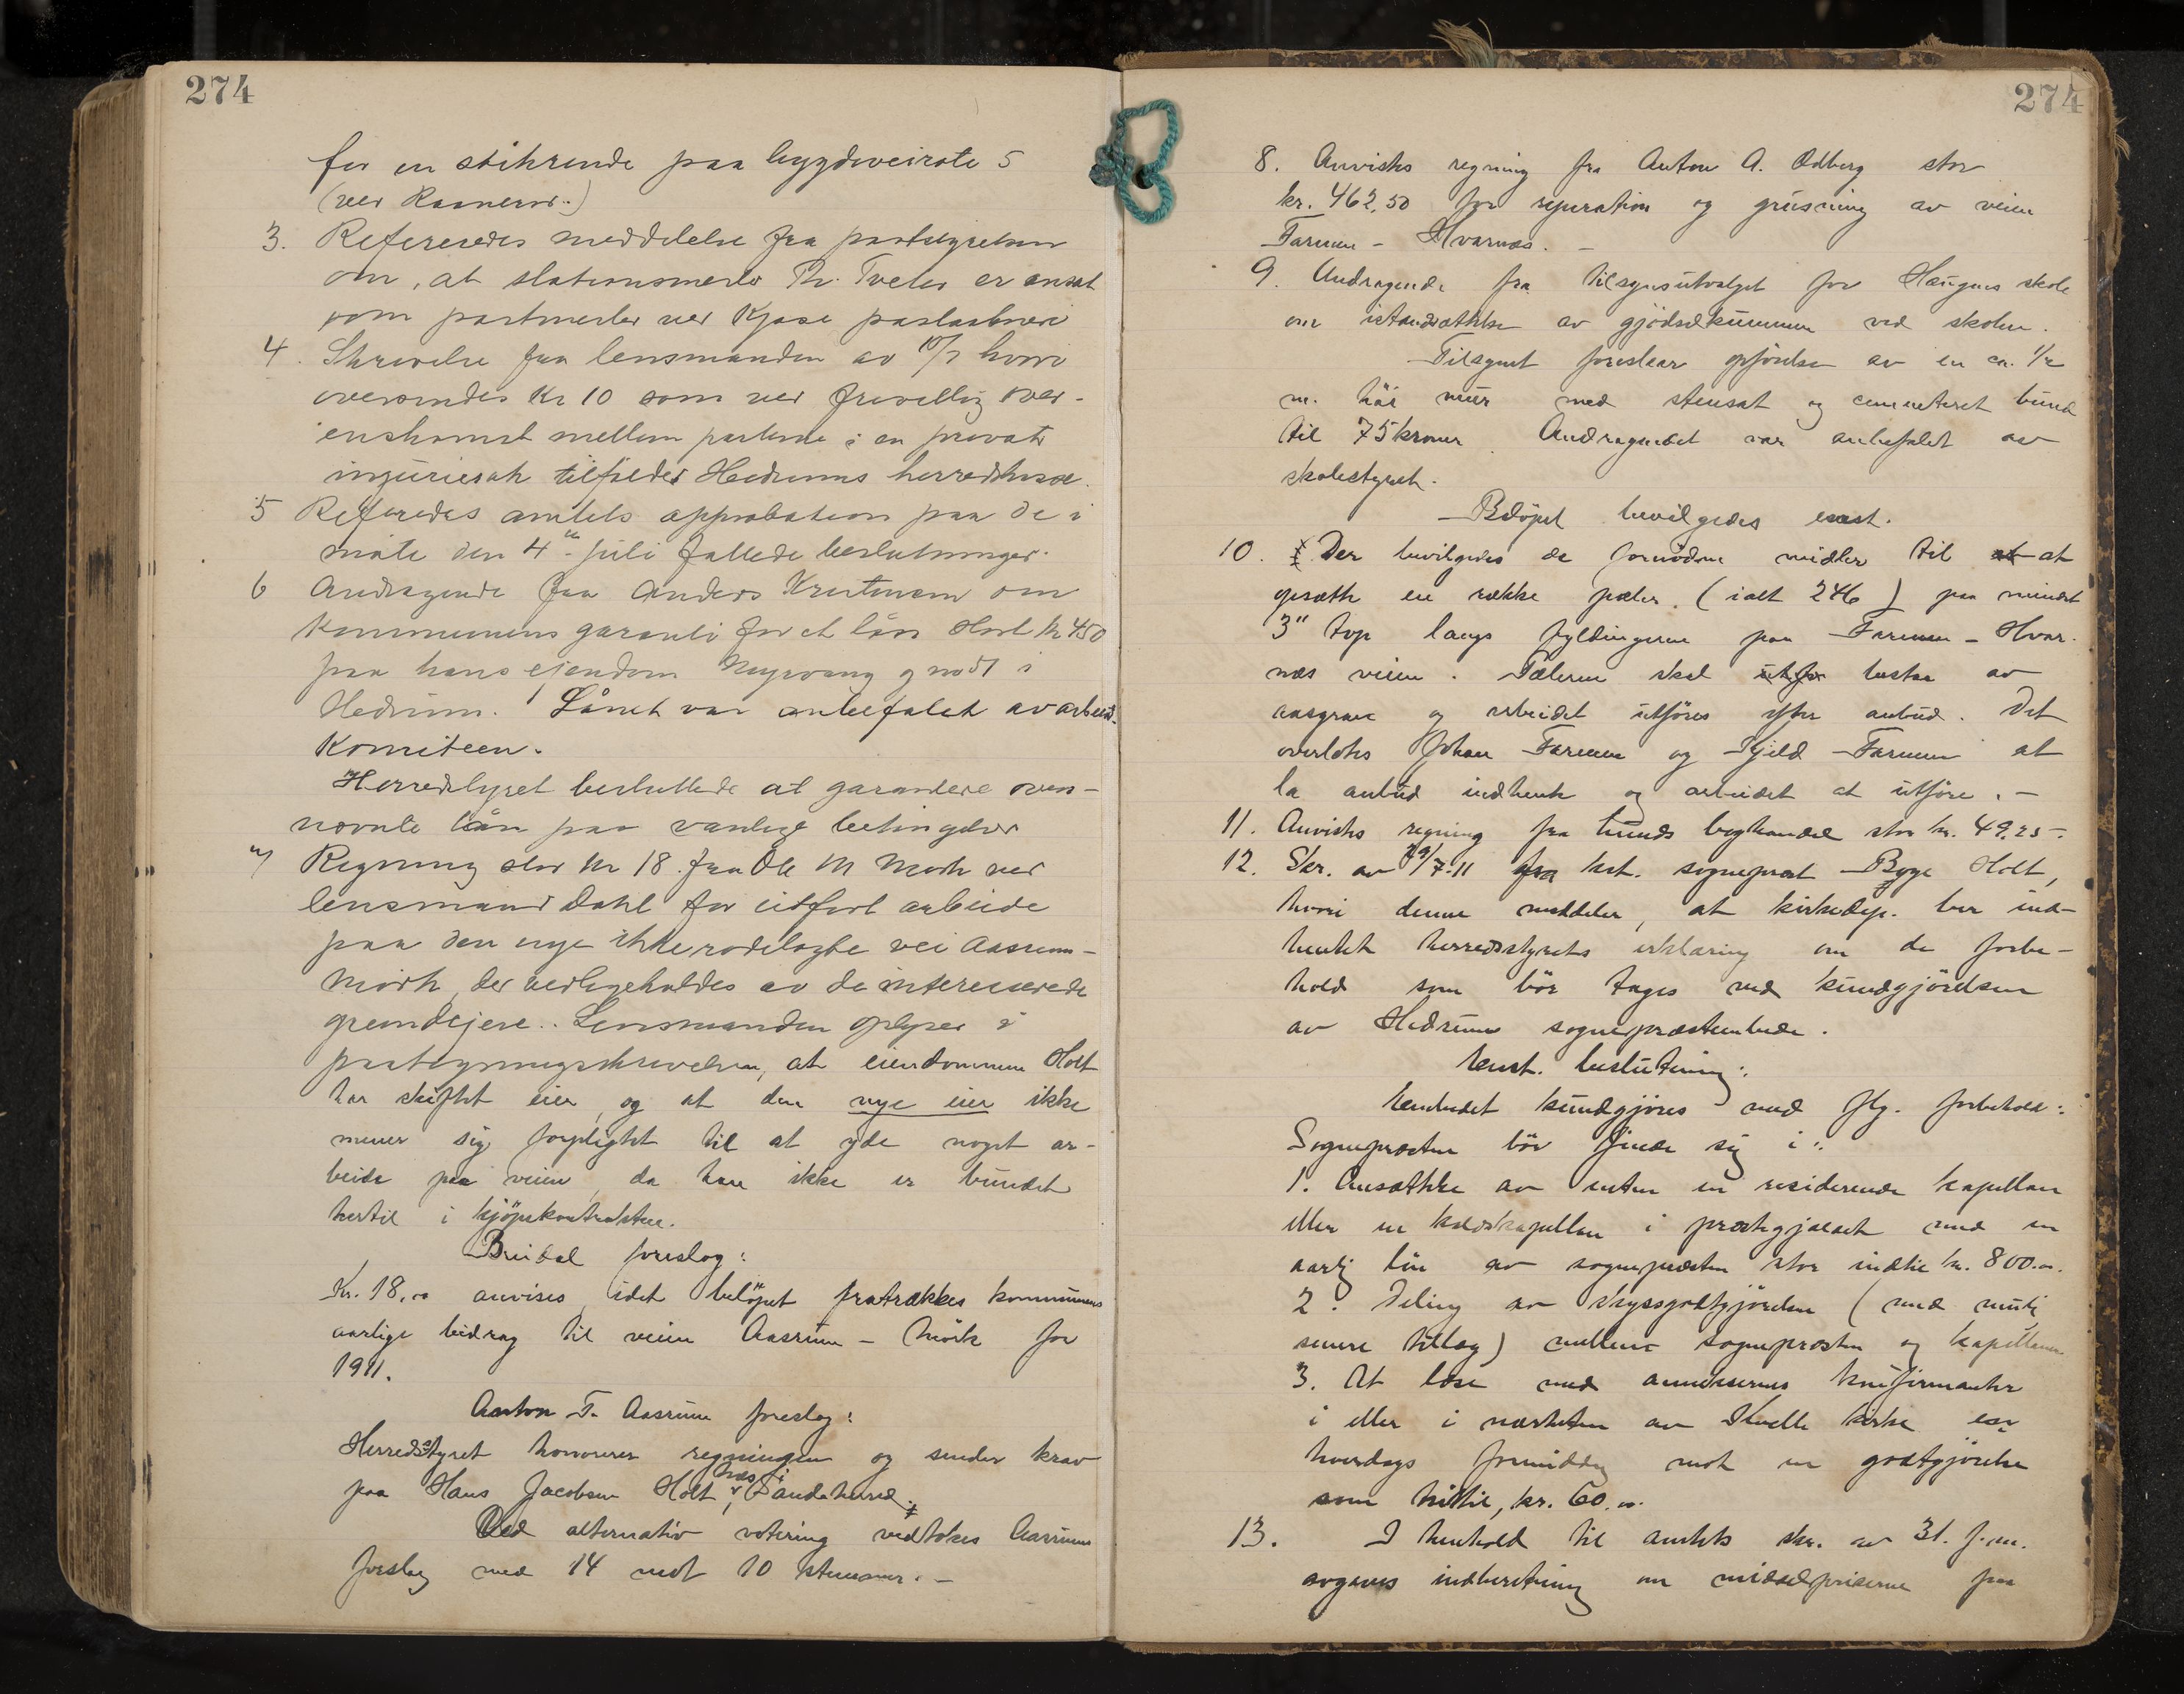 274
for en stikrende paa bygdeveirote 5
(ved Raanerød.)
3. Refereredes meddelelse fra poststyrelsen
om, at stationsmester Th. Tveter er ansat
som postmester ved Kjose postaabneri
4. Skrivelse fra lensmanden av 10/7 hvori
oversendes Kr 10 som ved frivillig over-
enskomst mellem parterne i en privat
injuriesak tilfalder Hedrums herredskasse.
5 Refereredes amtets approbation paa de i
møte den 4de juli fattede beslutninger.
6 Andragende fra Anders Kristensen om
kommunens garanti for et lån stort kr 450
paa hans ejendom Nyvang g no 51 i
Hedrum. Lånet var anbefalet av arbeid.
komiteen.
Herredstyret besluttede at garandere oven-
nævnte lån paa vanlige betingelser
7 Regning stor kr 18 fra Ole M Mørk ved
lensmand Dahl for utført arbeide
paa den nye ikke rodelagte vei Aasrum-
Mørk, der vedligeholdes av de interesserede
grundejere. Lensmanden oplyser i
paategningsskrivelsen, at eiendommen Holt
har skiftet eier, og at den nye eier ikke
mener sig forpligtet til at yde noget ar-
beide paa veien, da han ikke er bundet
hertil i kjöpekontrakten.
Bredal foreslog:
Kr. 18.00 anvises, idet belöpet fratrækkes kommunens
aarlige bidrag til veien Aasrum - Mörk for
1911.
Anton T. Aasrum foreslog:
Herredsstyret honorerer regningen og sender krav
paa Hans Jacobsen Holt, Sandeherred.
Ved alternativ votering vedtokes Aasrums
forslag med 14 mot 10 stemmer. -
274
8. Anvistes regning fra Anton A. Odberg stor
kr. 462,50 for reparation og grusning av veien
Farmen - Hvarnes. -
9. Andragende fra tilsynsutvalget for Haugens skole
om istandsættelse av gjödselkummen ved skolen.
Tilsynet foreslaar opförelse av en ca. 1/2
m. höi mur med stensat og cementeret bund
til 75 kroner. Andragendet var anbefalet av
skolestyret.
Belöpet bevilgedes enst.
10. Der bevilgedes de fornödne midler til at at
opsætte en række pæler (ialt 246) paa mindst
3" top langs fyldingerne paa Farmen - Hvar-
næs veien. Pælerne skal bestaa av
aasgran og arbeidet utföres efter anbud. Det
overlotes Johan Farmen og Kjeld Farmen at
la anbud indhente og arbeidet at utföre. -
11. Anvistes regning fra Lunds boghandel stor kr. 49.25 -.
12. Skr. av 29/7-11 fra kst. sogneprest Byge Holt,
hvori denne meddeler, at kirkedep. ber ind-
hentet herredsstyrets erklæring om de forbe-
hold som bör tages ved kundgjörelsen
av Hedrum sogneprestembede.
Enst. beslutning:
Embedet kundgjöres med flg. forbehold:
Sognepresten bör finde sig i:
1. Ansættelse av enten en residerende kapellan
eller en kaldskapellan i prestegjældet med en
aarlig lön av sognepresten stor indtil kr. 800.00.
2. Deling av skyssgodtgjörelsen (med mulig
senere tillæg) mellem sognepresten og kapellanen.
3. At læse med anneksernes konfirmanter
i eller i nærheten av Kvelle kirke en
hverdags formiddag mot en godtgjörelse
som hittil, kr. 60.00.
13. I henhold til amtets skr. av 31. f.m.
avgaves indberetning om middelpriserne paa